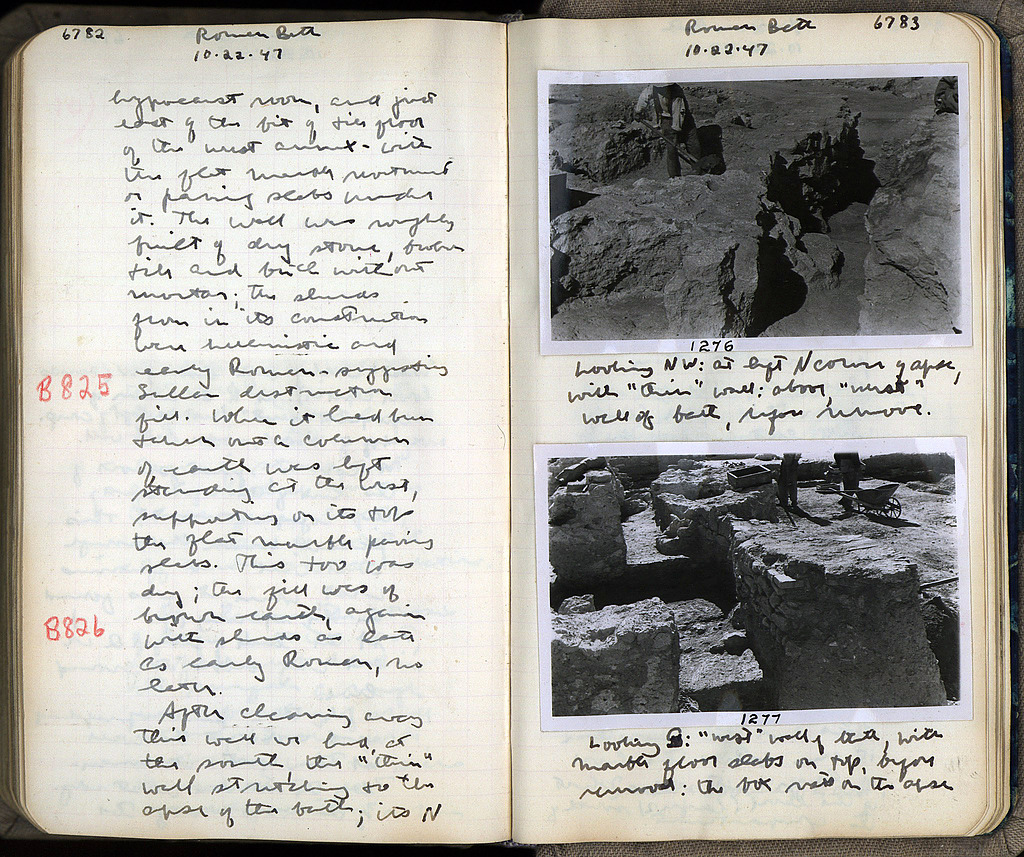 6782
Roman Bath
10·22·47
hypocaust room, and just
east of the bit of tile floor
of the west annex - with
the flat marble
or paving slabs under
it. This wall was roughly
built of dry stone, broken
tile and brick without
mortar; the sherds
from in its construction
were hellenistic and
early Roman - suggesting
B825
Sullan destruction
fill. When it had been
taken out a column
of earth was left
standing at the west,
supporting on its top
the flat marble paving
slabs. This too was
dug; the fill was of
brown earth, again
B826
with sherds as late
as early Roman, no
later.
After clearing away
this wall we had, at
the south, the "thin"
wall stretching to the
apse of the bath; its N
Roman Bath
6783
10·22·47
1276
Looking NW: at left N corner of apse,
with "thin" wall: above, "west"
wall of bath, before removal.
1277
Looking S: "west" wall of bath, with
marble floor slabs on top, before
removal: the box rests on the apse